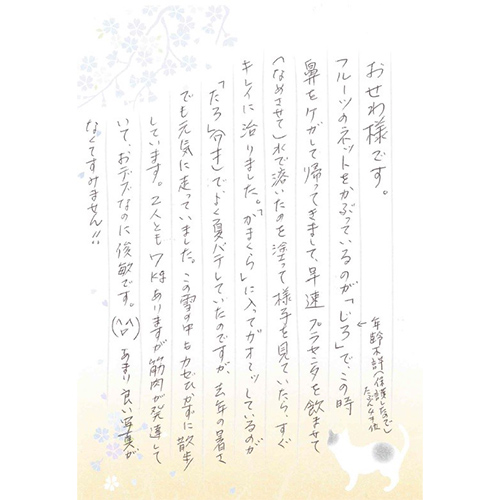 おせわ様です。
フルーツのネットをかぶっているのが「じろ」でこの時
年齢不詳(保護したので)
たぶん4才位
鼻をケガして帰ってきまして、早速プラセンタを飲ませて
(なめさせて)水で溶いたのを塗って様子を見ていたら、すぐ
キレイに治りました。「かまくら」に入ってガオーッしているのが
「たろ」(今き)でよく夏バテしていたのですが、去年の暑さ
でも元気に走っていました。この雪の中もカゼひかずに散歩
しています。2人とも7kgありますが筋肉が発達して
いて、おデブなのに俊敏です。(^▽^)あまり良い写真が
なくてすみません!!